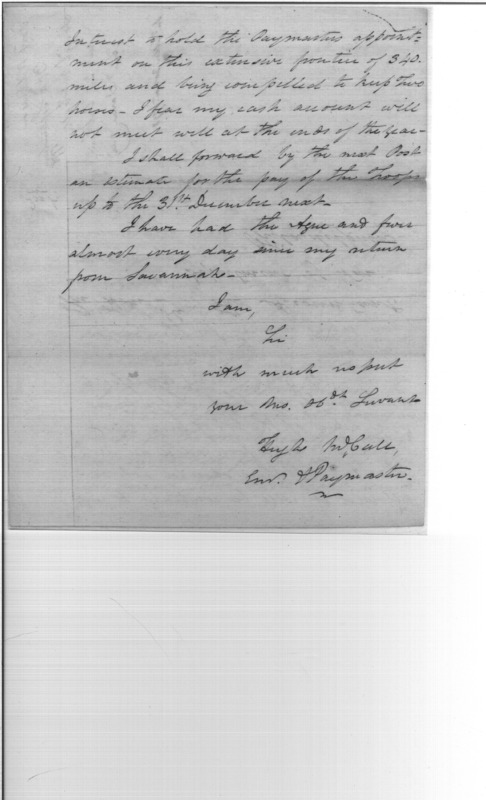 Interest to hold the Paymasters appoint-
ment on this extensive frontier of 340.
miles and being compelled to keep two
horses - I fear my cash account will
not meet well at the ends of the year -
I shall forward by the next Post
an estimate for the pay of the Troops
up to the 31st December next -
I have had the Ague and fever
almost every day since my return
from Savannah -
I am,
Sir
with much respect
your Mo. Obdt. Servant
Hugh McCall,
Ensn. & Paymaster.